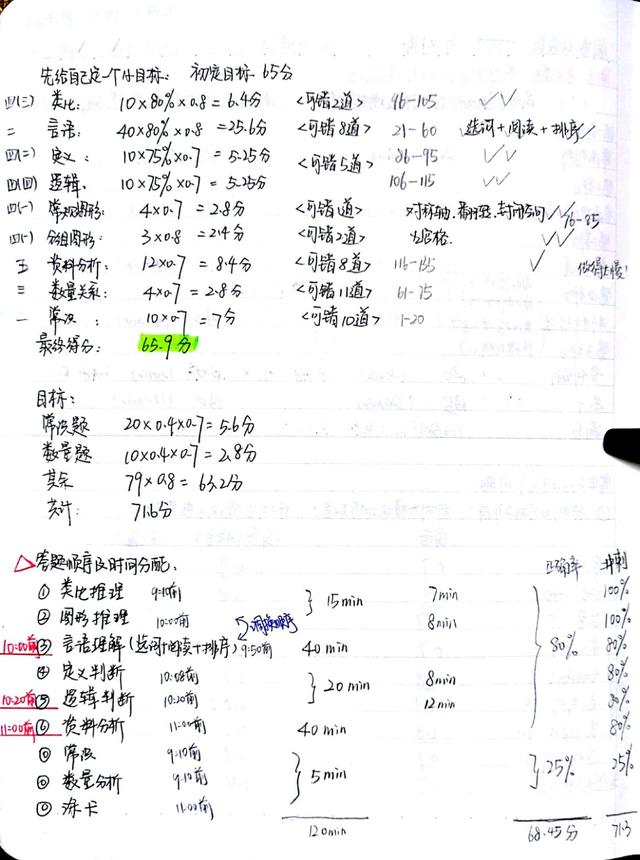 先给自己定一个小目标: 初定目标 65分
四(三) 类比: 10×80%×0.8=6.4分 <可错2道> 96-105 ✓✓
二 言语: 40×80%×0.8=25.6分 <可错8道> 21-60 选词+阅读+排序✓
四(二) 定义: 10×75%×0.7=5.25分 <可错5道> 86-95 ✓✓
四(四) 逻辑: 10×75%×0.7=5.25分 106-115 ✓✓
四(一) 常规图形: 4×0.7=2.8分 <可错1道> 对称轴. 封闭空间 ✓✓ 76-85
四(一) 分组图形: 3×0.8=2.4分 <可错2道> 为合格. ✓✓
五 资料分析: 12×0.7=8.4分 <可错8道> 116-135 ✓ 做得太慢!
三 数量关系: 4×0.7=2.8分 <可错11道> 61-75
一 常识: 10×0.7=7分 <可错10道> 1-20
最终得分: 65.9分
目标:
常识题 20×0.4×0.7=5.6分
数量题 10×0.4×0.7=2.8分
其余 79×0.8=63.2分
共计: 71.6分
△答题顺序及时间分配: 正确率 冲刺
① 类比推理 9:10前 15min 7min 100%
② 图形推理 10:00前 8min 100%
调换顺序
10:00前 ③ 言语理解(选词+阅读+排序) 9:50前 40min 80% 80%
④ 定义判断 10:08前 20min 8min 80%
10:20前 ⑤ 逻辑判断 10:20前 12min 80%
11:00前 ⑥ 资料分析 11:00前 40min 80%
⓪ 常识 9:10前 5min 25% 25%
⓪ 数量分析 9:10前
⓪ 涂卡 11:00前
120min 68.45分 71.3